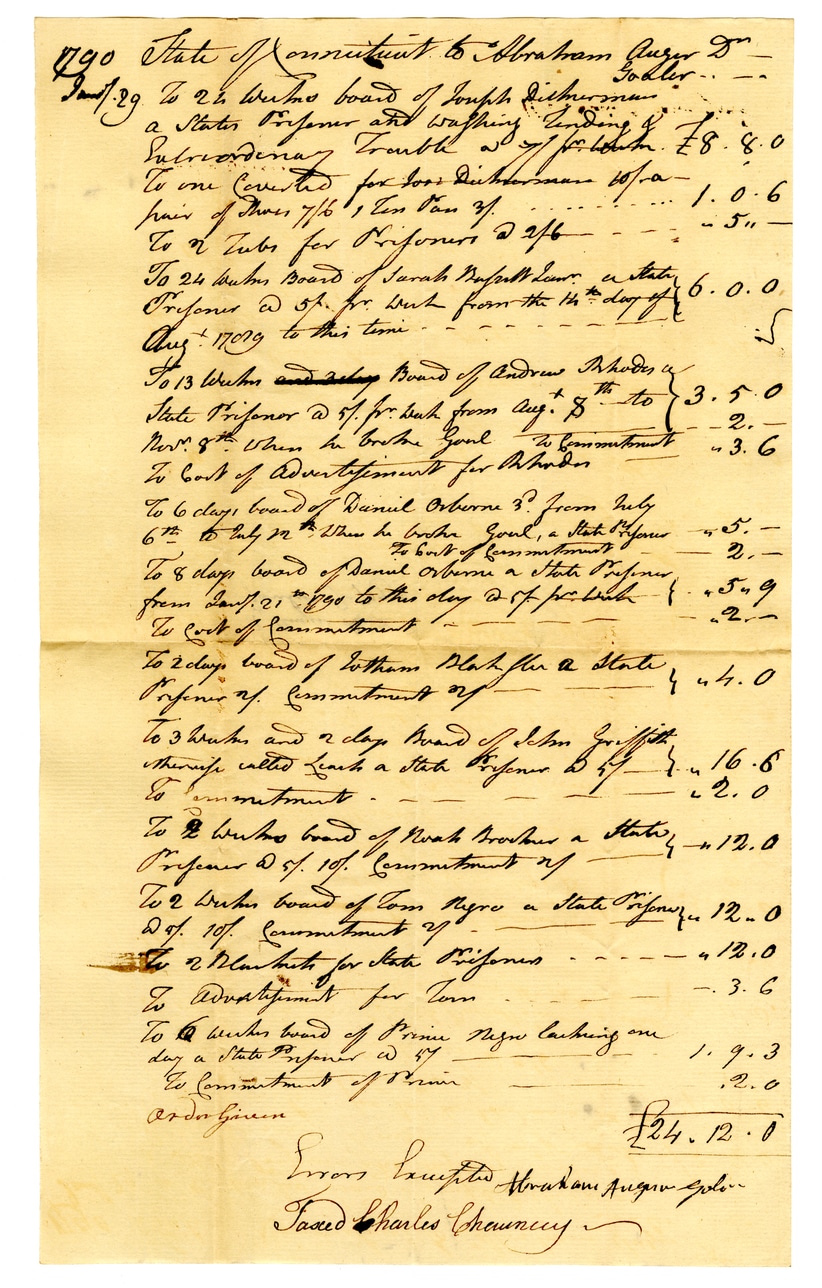 1790 State of Connecticut to Abraham Auger Dr
Goaler
Jany. 29 To 24 Weeks board of Joseph Dickerman
a States Prisoner and washing Tending &
Extreordenary Trouble @ 7/ pr. Week. £8. 8. 0
To one Coverled for Jos: Dickerman 10/ a
pair of Shoes 7/6 1 Ten Pan 3/. 1. 0. 6
To 2 Tubs for Prisoners @ 2/6 " 5 " —
To 24 Weeks Board of Sarah a State
Prisoner @ 5/. pr. Week from the 14th day of 6. 0. 0
Augt. 1789 to this time
To 13 Weeks Board of Andrew Rhodes a
State Prisonor @ 5/. pr Week from Augt. 8th to 3. 5. 0
Novr. 8th. When he broke Goal To Commitment 2. —
To Cost of Advertisement for Rhodes " 3. 6
To 6 days board of Daniel Osborne 3d. from July
6th to July 12th. When he broke Goal, a State Prisoner " 5. —
To Cost of Commitment 2. —
To 8 days board of Daniel Osborne a State Prisoner
from Jany. 21st 1790 to this day @ 5/. pr. Week " 5 " 9
To Cost of Commitment " 2. —
To 2 days board of Jotham Blakslee a State
Prisoner 2/. Commitment 2/ " 4. 0
To 3 Weeks and 2 days Board of John Griffith
otherwise called Leach a State Prisoner @ 5/ " 16. 6
To Commitment " 2. 0
To 2 Weeks board of Noah a State
Prisoner @ 5/. 10/. Commitment 2/ " 12. 0
To 2 Weeks board of Tom Negro a State Prisoner
@ 5/. 10/. Commitment 2/ " 12 " 0
To 2 Blankets for State Prisoners " 12. 0
To Advertisement for Tom 3. 6
To 6 weeks board of Prince Negro lacking one
day a State Prisoner @ 5/ 1. 9. 3
To Commitment of Prince . 2. 0
Ordor Given
£24. 12. 0
Errors Excepted Abraham Augur Goler
Taxed Charles Chauncey